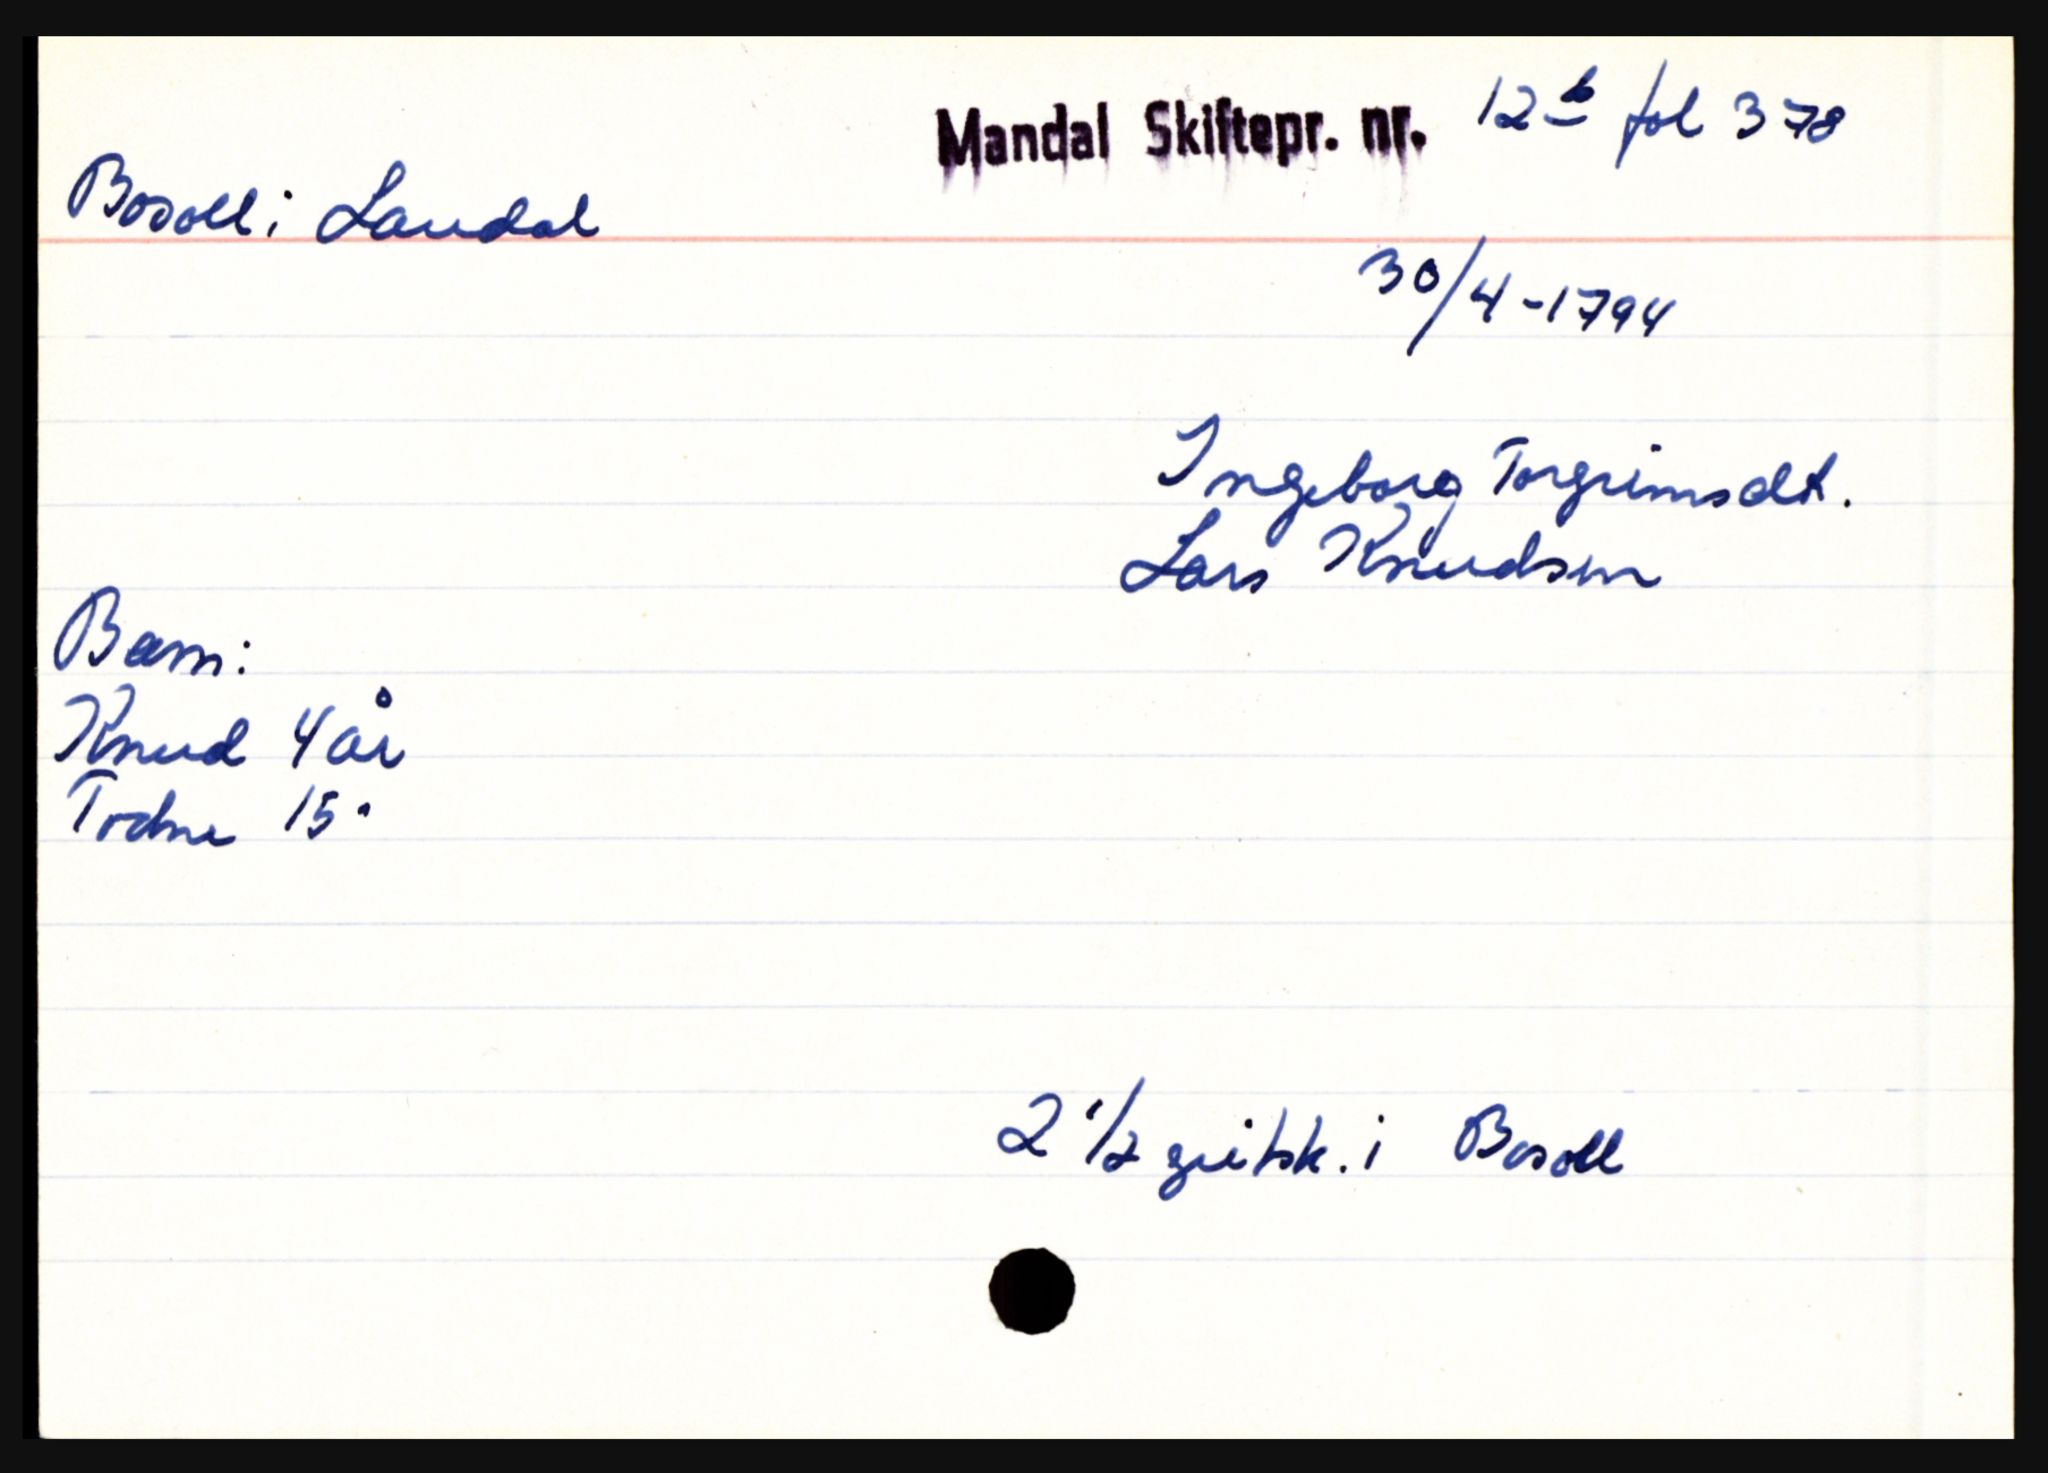 Mandal Skiftepr. nr. 12 b fol 378
Bosoll i Laudal
30/4-1794
Ingeborg Torgrimsdt.
Lars Knudsen
Barn:
Knud 4 år
Todne 15 "
2 1/2 geitsk. i Bosoll